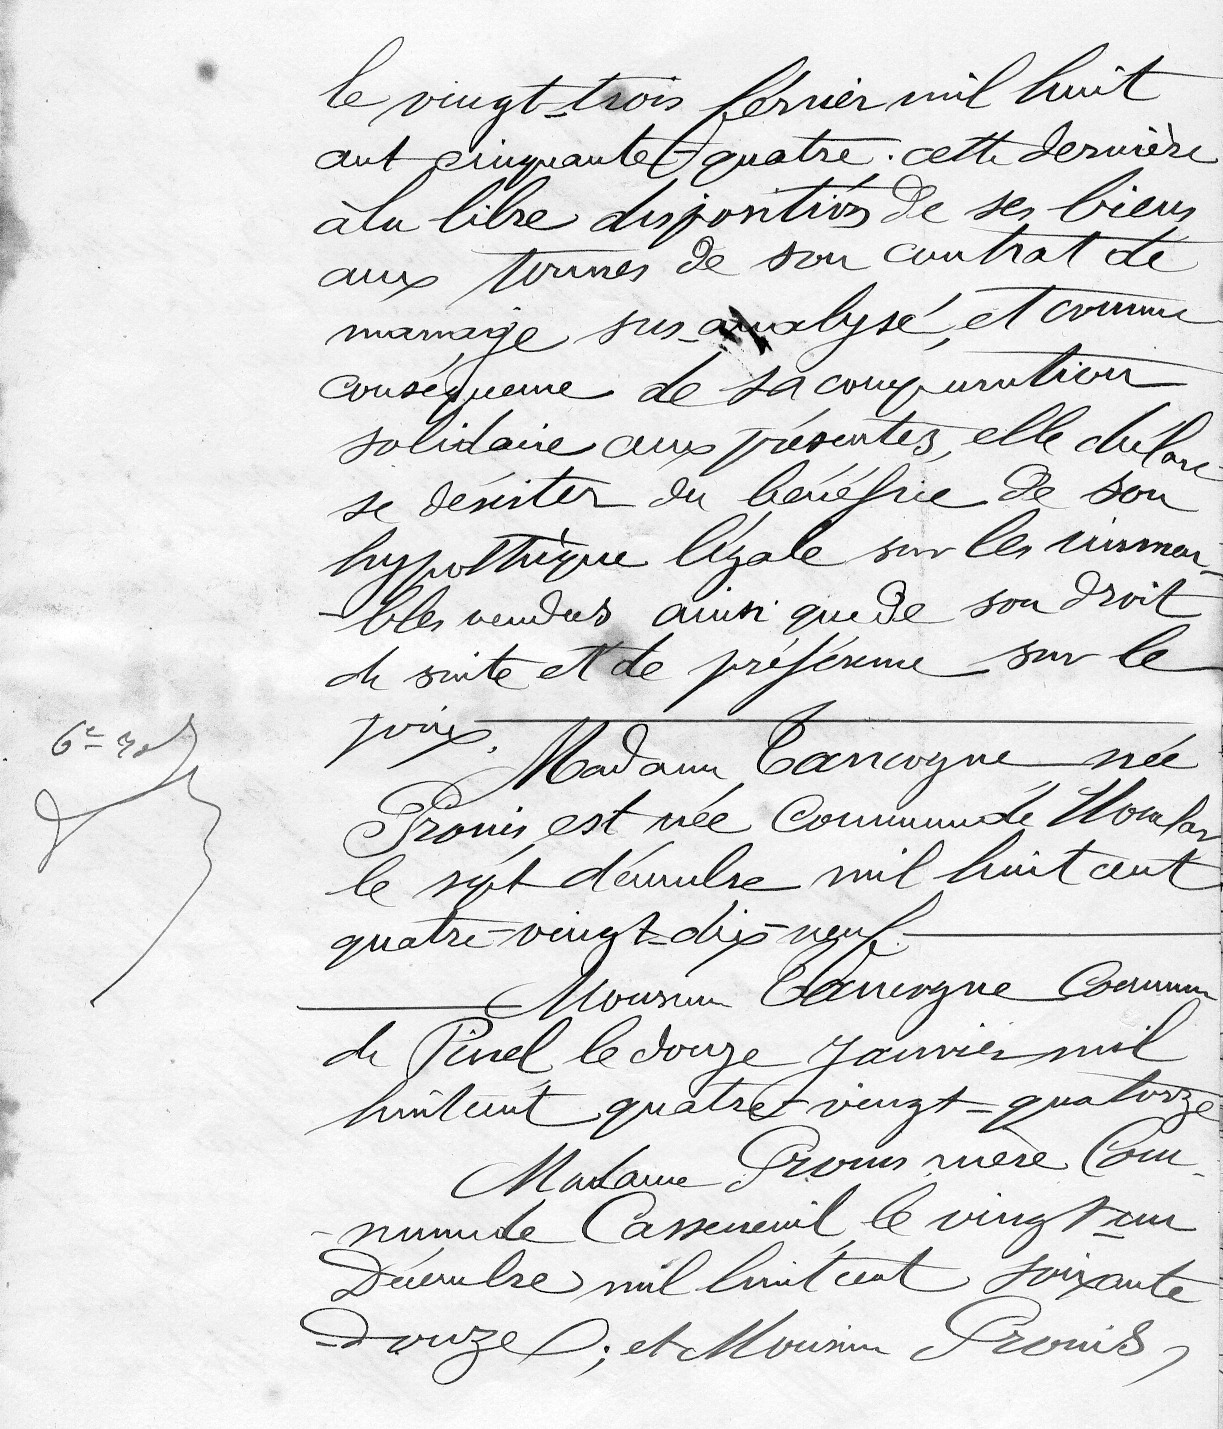 le vingt-trois février mil huit
cent cinquante-quatre. cette dernière
à la libre disposition de ses biens
aux termes de son contrat de
mariage sus-analysé, et comme
conséquence de sa comparution
solidaire aux présentes, elle déclare
se désister du bénéfice de son
hypothèque légale sur les immeu-
-bles vendus ainsi que de son droit
de suite et de préférence sur le
prix.
Madame Tancogne née
6e rol
Pronis est née Commune de
le sept décembre mil huit cent
quatre-vingt-dix-neuf.
Monsieur Tancogne Commune
de Pinel le douze Janvier mil
huit cent quatre-vingt-quatorze
Madame Pronis mère Com-
-mune de Casseneuil le vingt-un
Décembre mil huit cent soixante
-douze; et Monsieur Pronis,